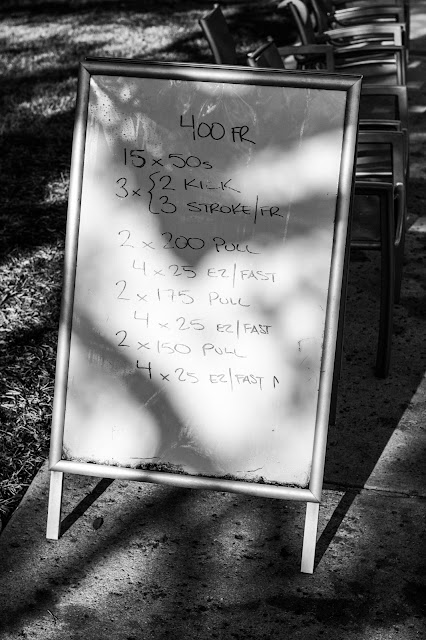 400 FR
15 x 50s
3 x { 2 KICK
3 STROKE/FR
2 x 200 PULL
4 x 25 EZ/FAST
2 x 175 PULL
4 x 25 EZ/FAST
2 x 150 PULL
4 x 25 EZ/FAST